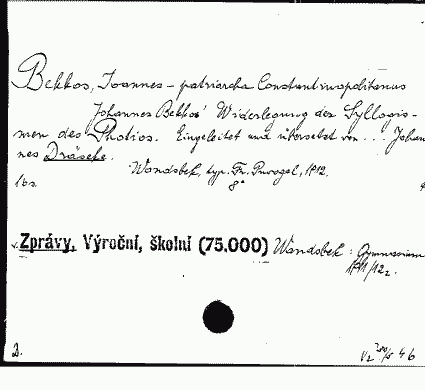 Bekkos, Joannes – patriarcha Constantinopolitanus
Johannes Bekkos' Widerlegung der Syllogis-
men des Photios. Eingeleitet und übersetzt von ... Johan
nes Dräseke.
Wandsbek, typ. Fr. Puvogel, 1912.
16s. 8°
v. Zprávy, Výroční, školní (75.000) Wandsbek : Gymnasium
1911/12.
D.
46